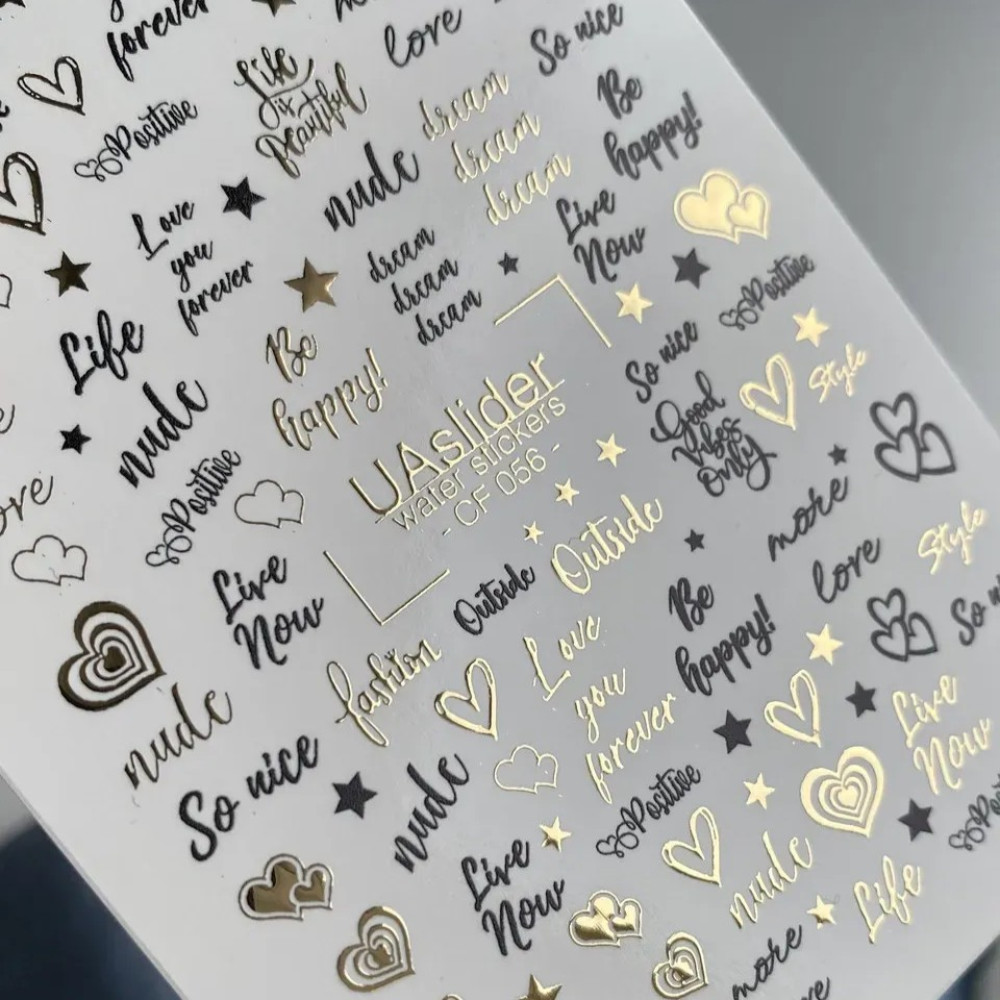 forever
love
So nice
Positive
Life
is
Beautiful
dream
dream
dream
Be
happy!
nude
Love
you
forever
dream
dream
dream
Live
Now
Positive
Life
Be
happy!
So nice
Style
nude
UAslider
water stickers
- CF 056 -
Good
Vibes
Only
Positive
more
Outside
Style
Live
Now
Outside
love
Be
happy!
fashion
Love
you
forever
nude
Live
Now
So nice
nude
Positive
Live
Now
nude
Life
more